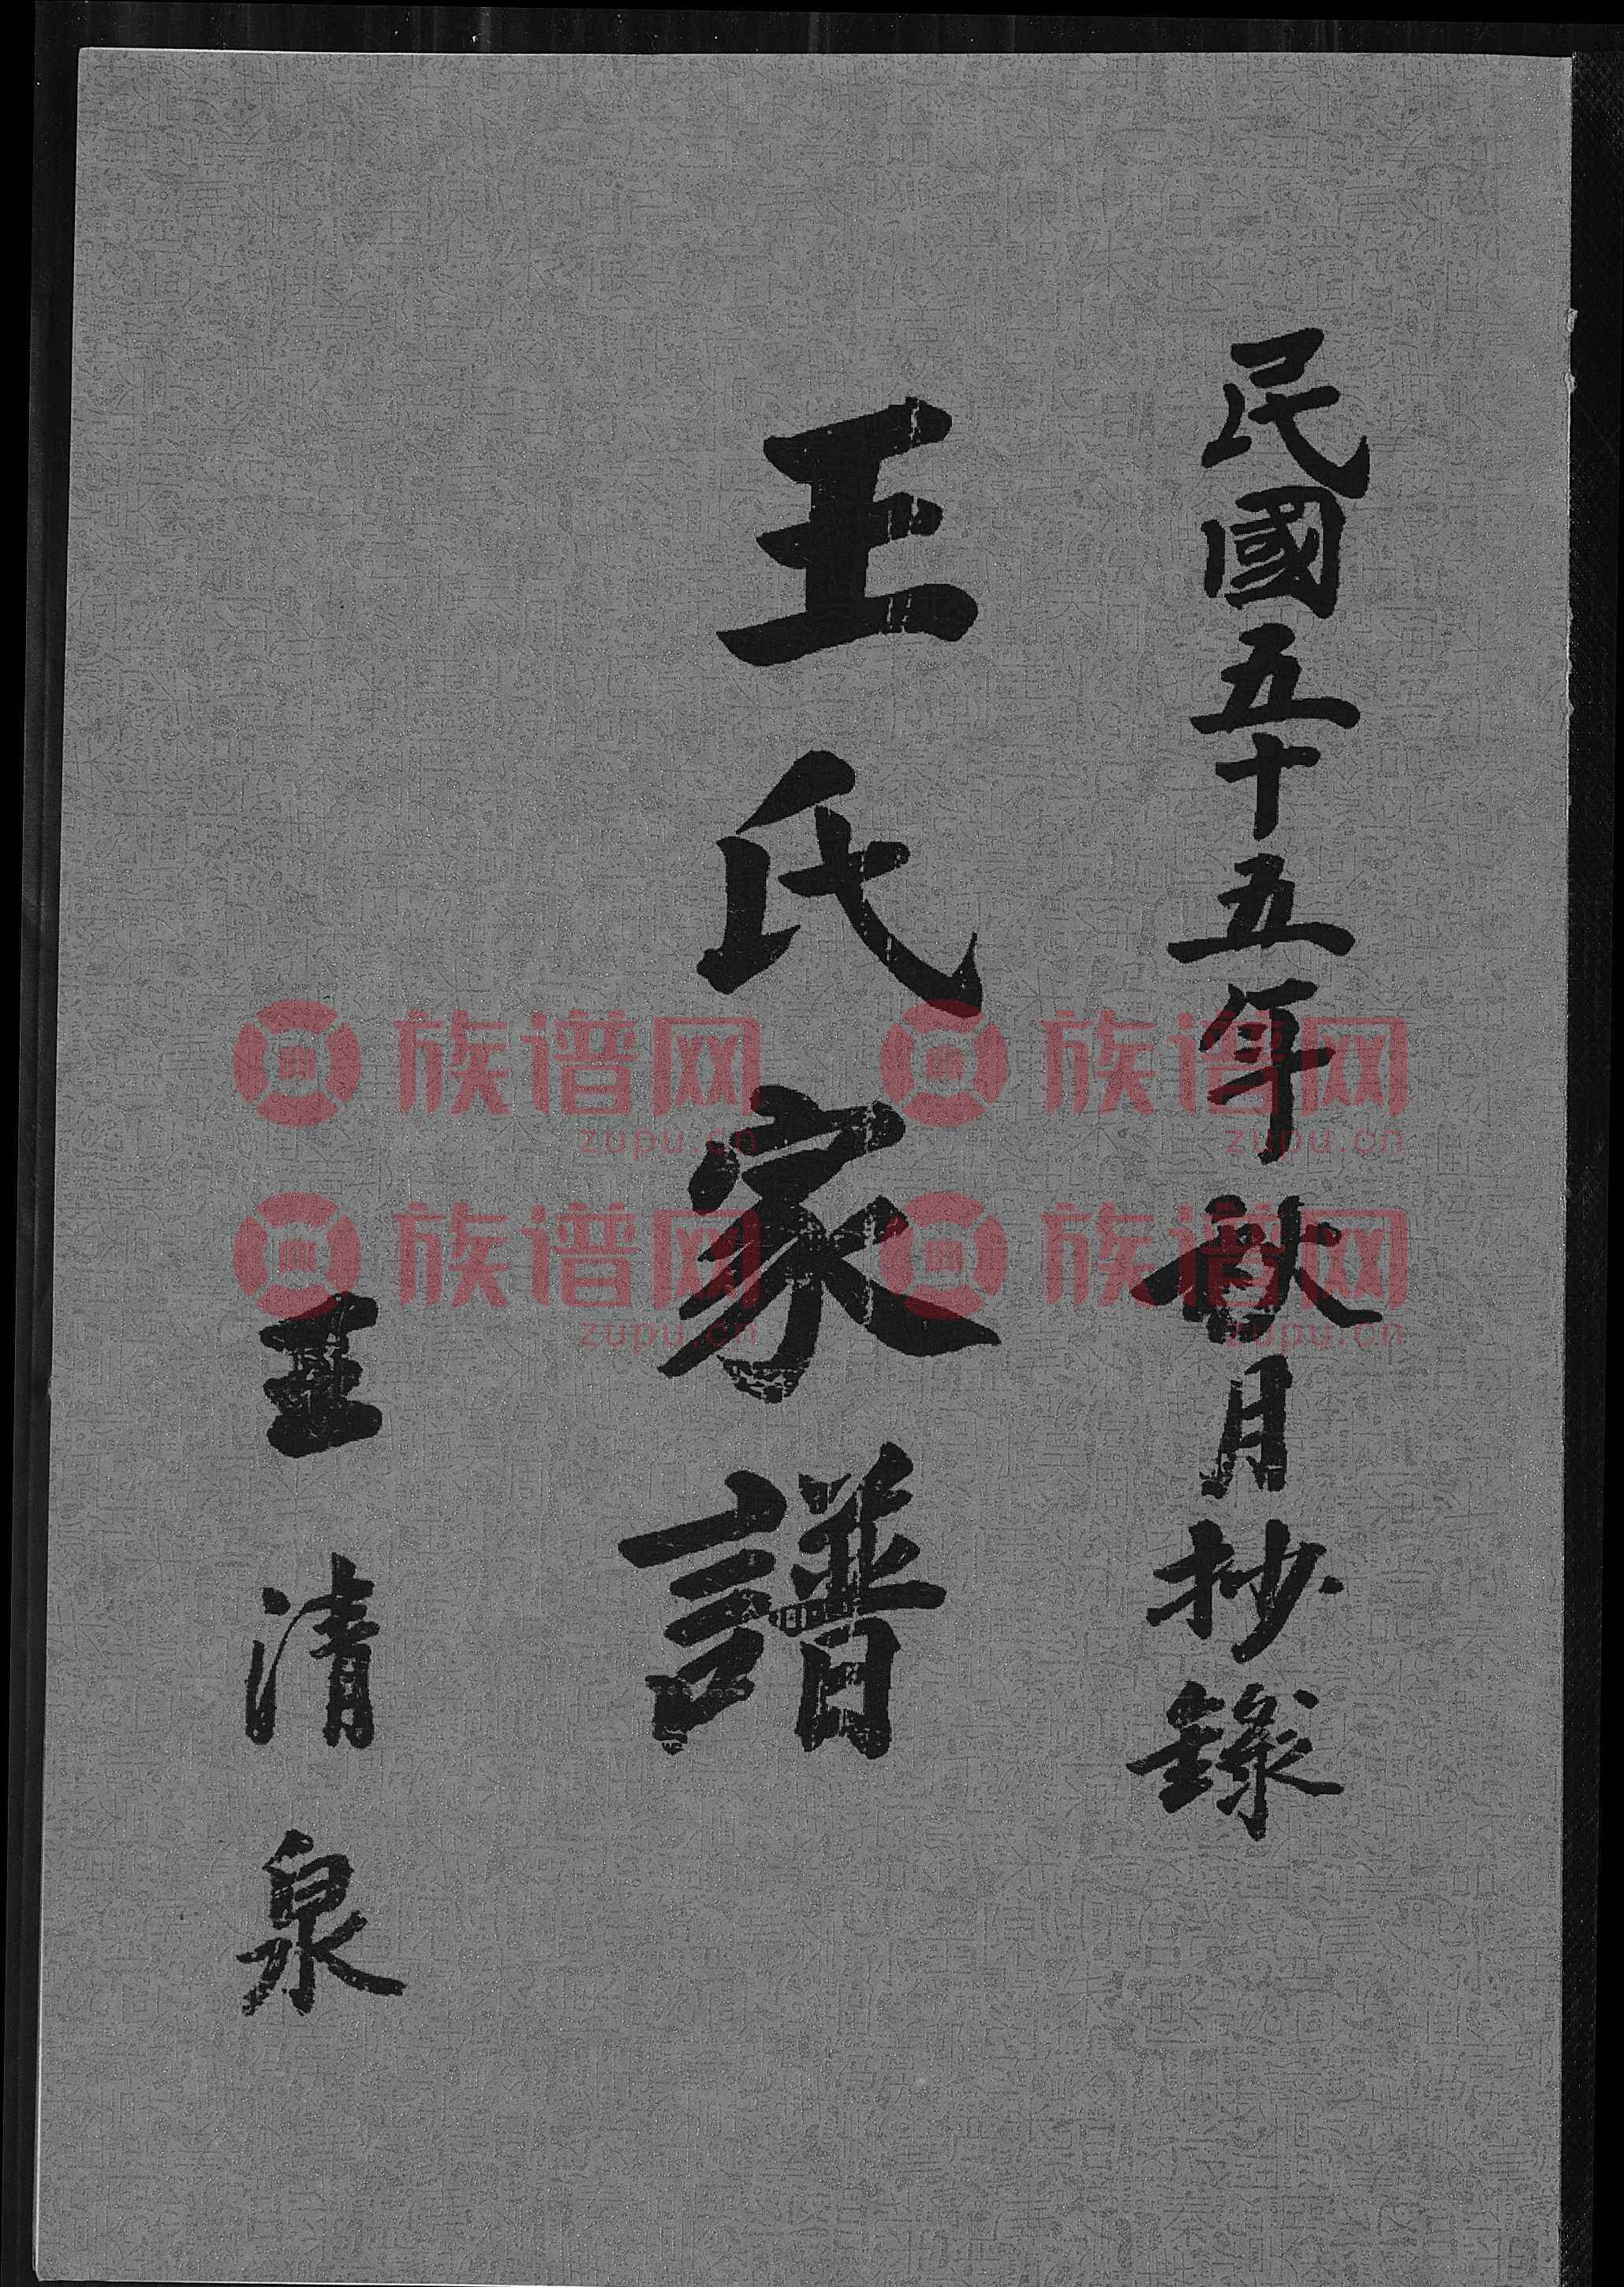 民國五十五年秋月抄錄
王氏家譜
王清泉
族谱网 族谱网
zupu.cn zupu.cn
族谱网 族谱网
zupu.cn zupu.cn